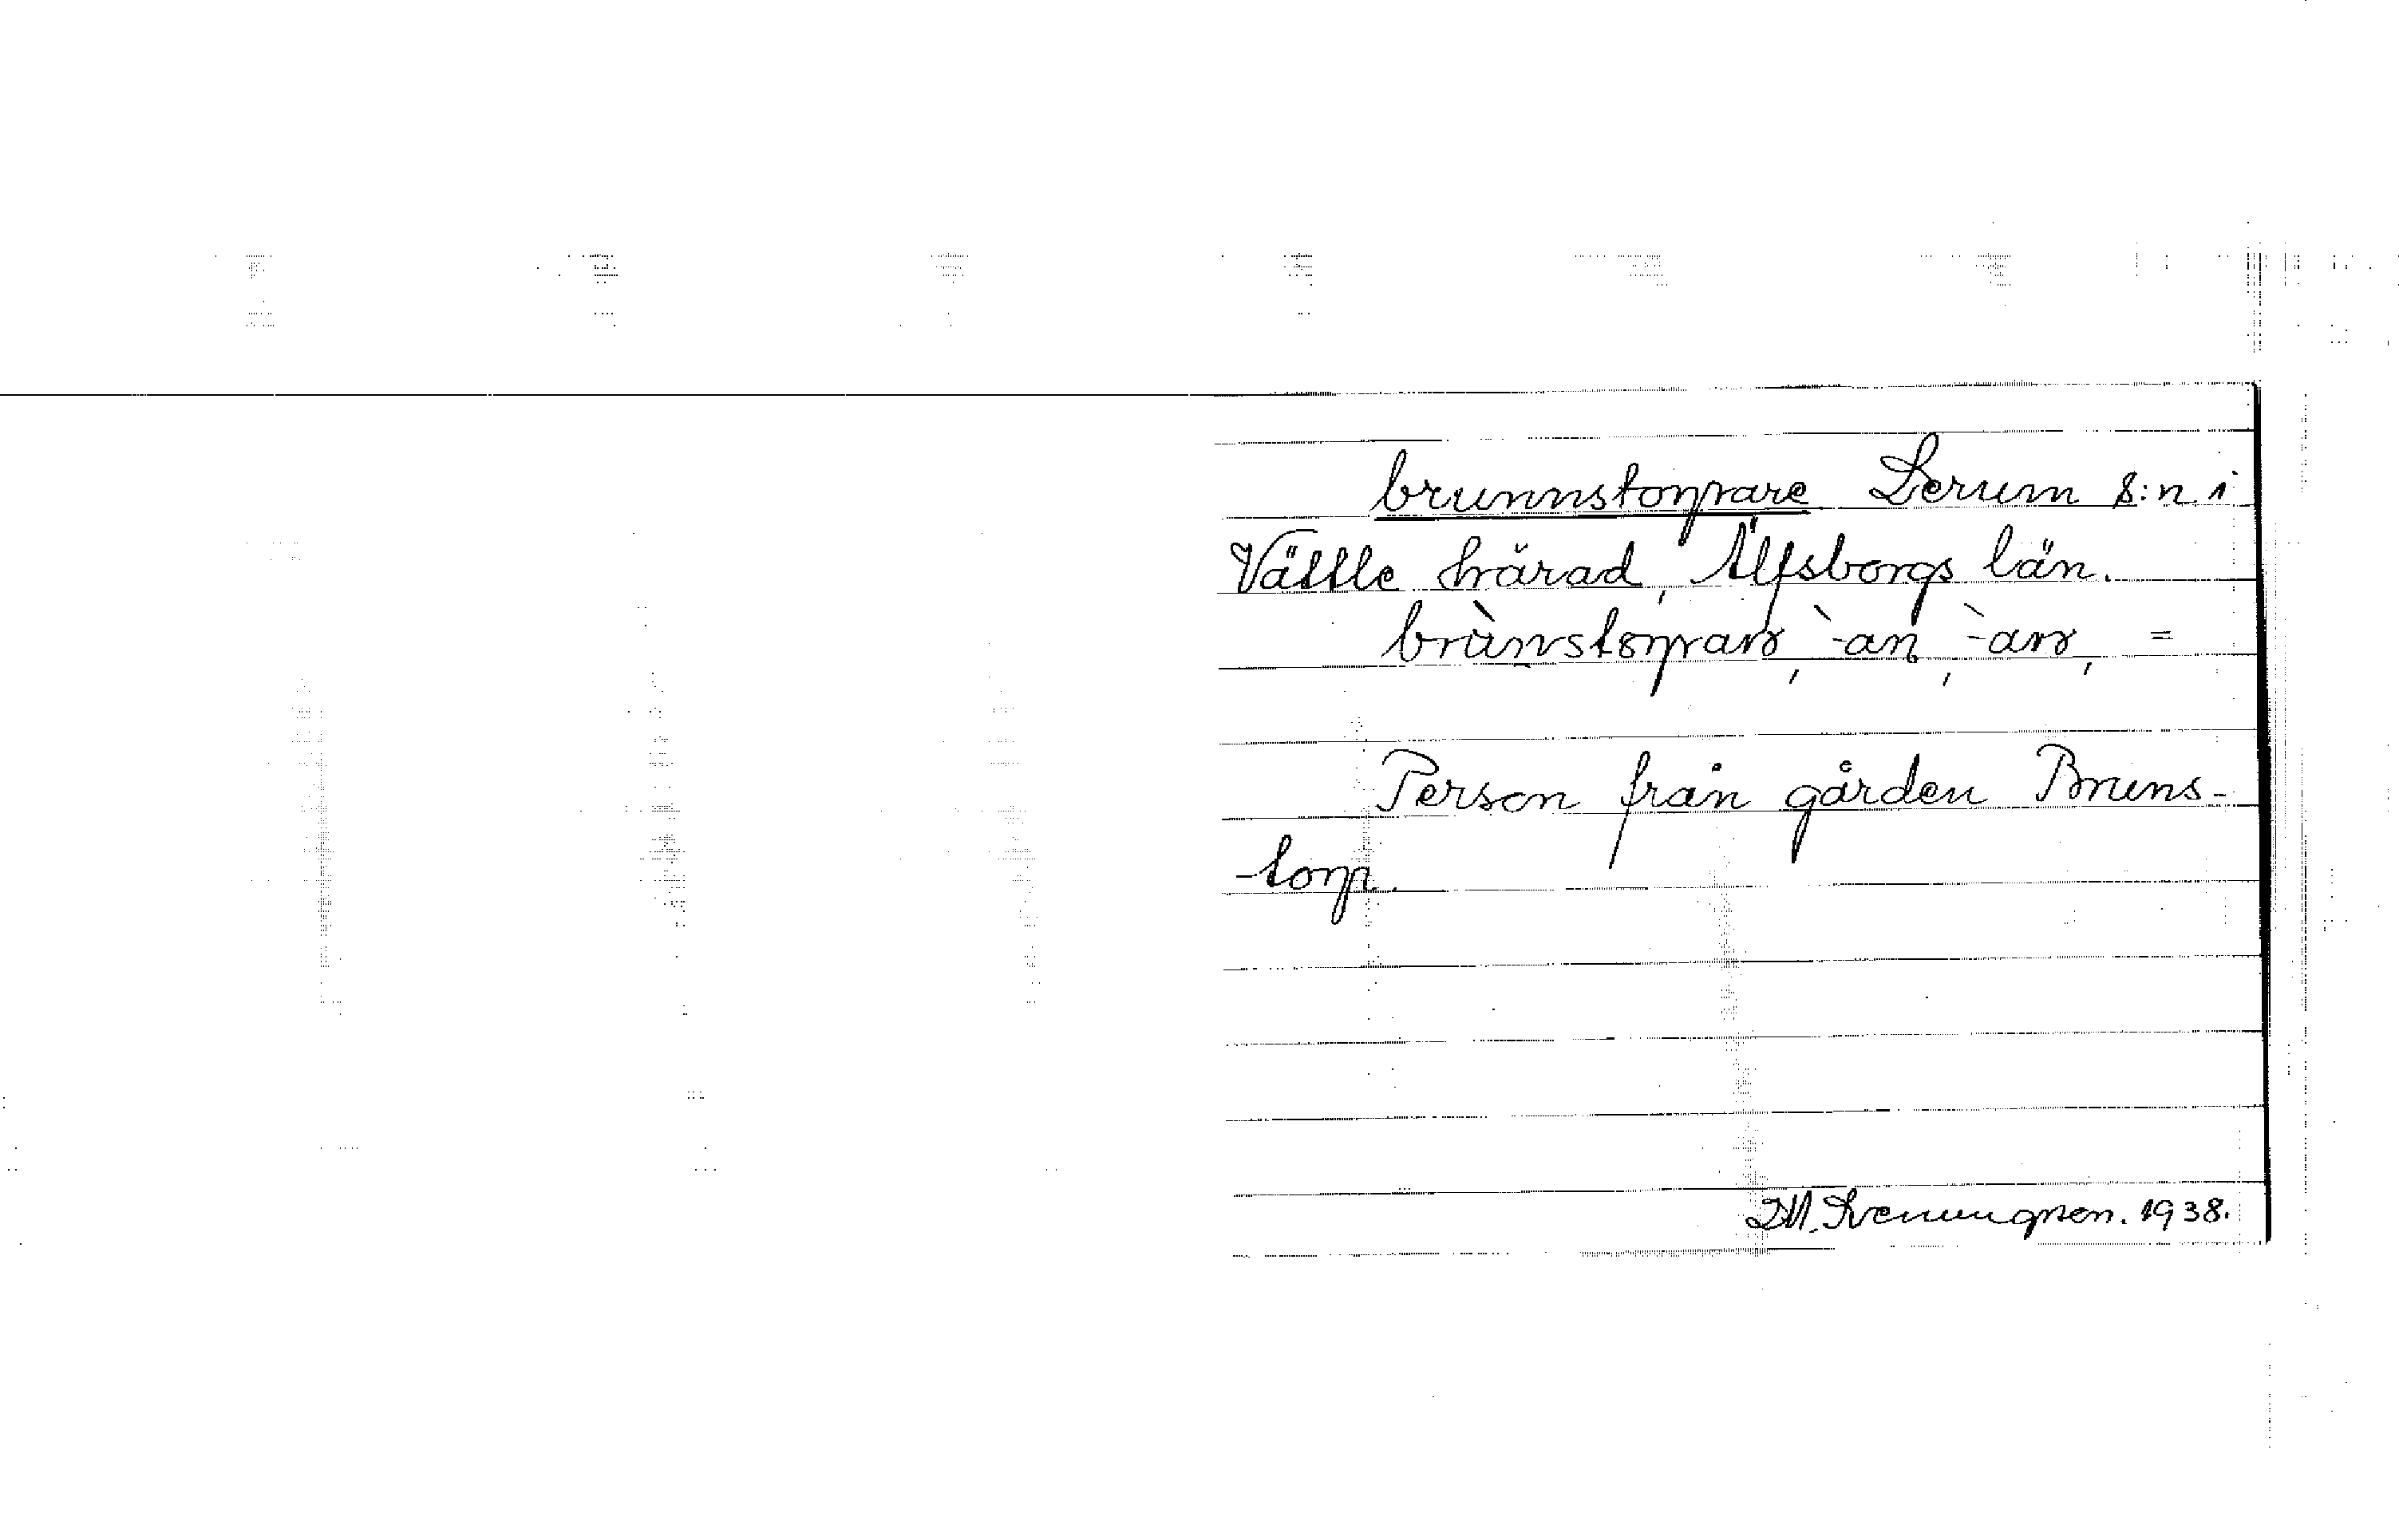 brunnstorpare Lerum s:n i
Vättle härad, Älfsborgs län.
brùnstorparə, -̀an, -̀arə, =
Person från gården Bruns-
-torp.
M. Svenungson. 1938.